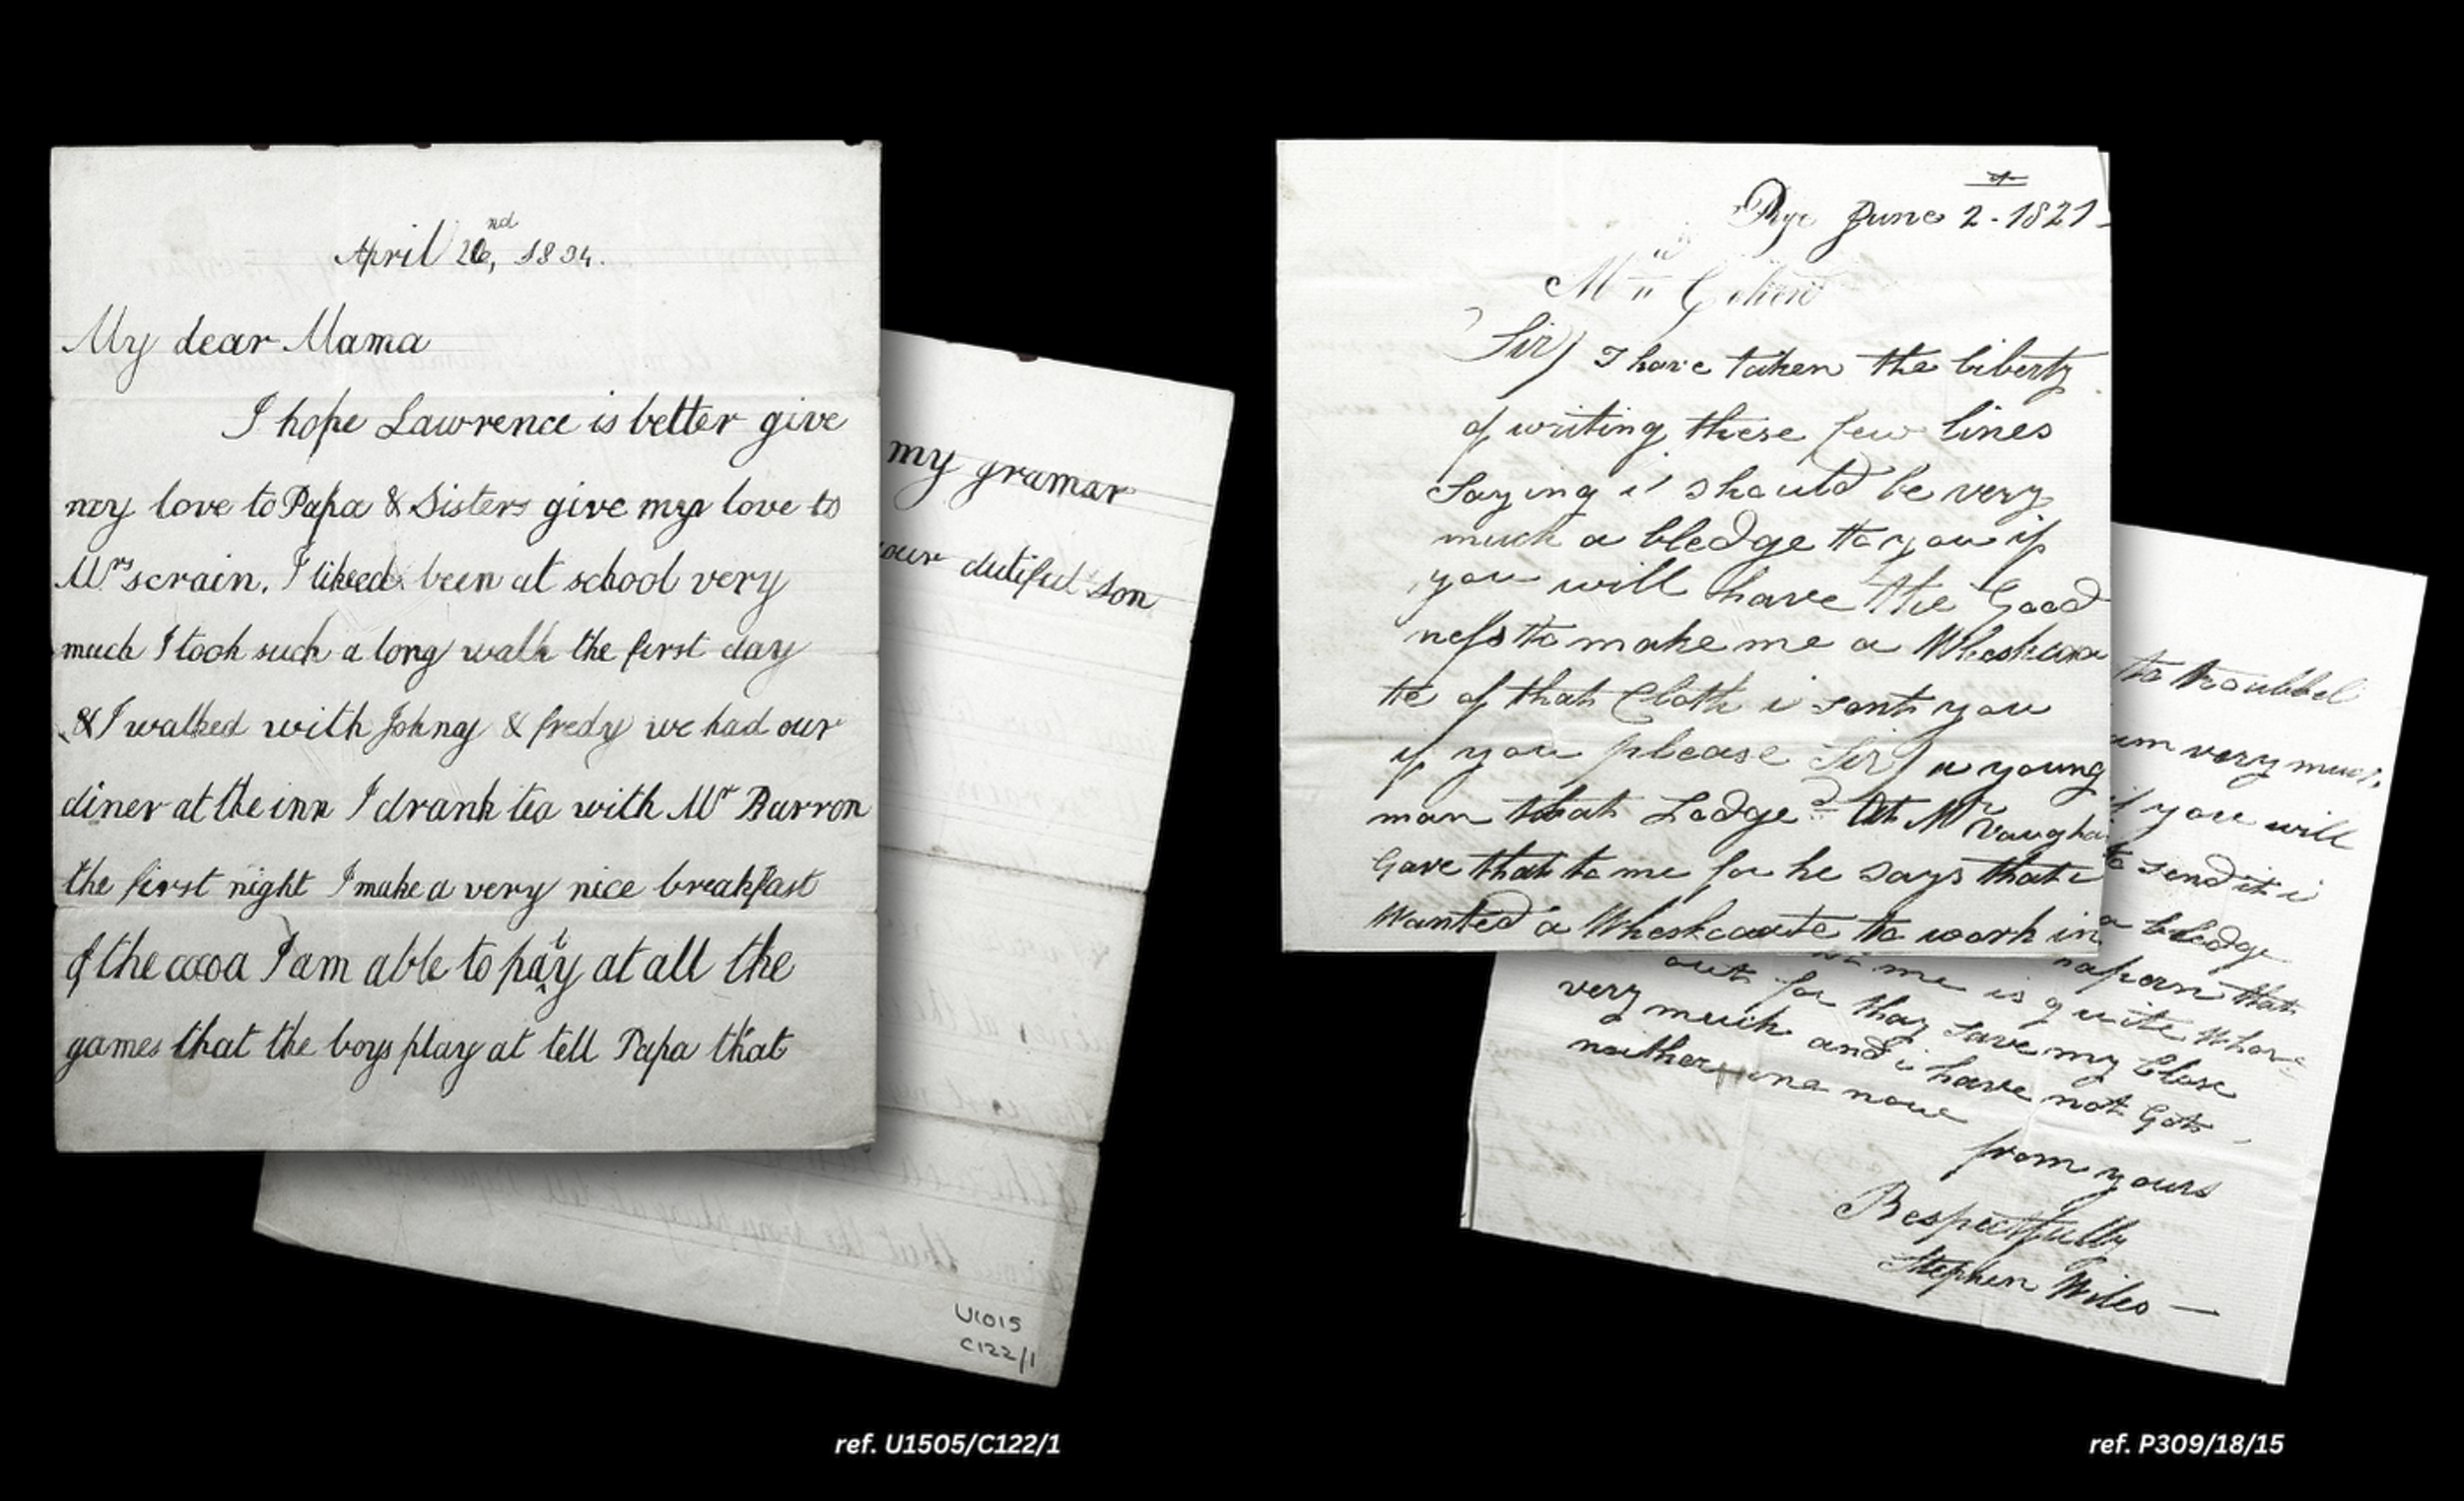 April 26, nd 1834.
My dear Mama
I hope Lawrence is better give
my love to Papa & Sisters give my love to
Mrs scrain. I liked been at school very
much I took such a long walk the first day
& I walked with Johny & fredy we had our
diner at the inn I drank tea with Mr Barron
the first night I make a very nice breakfast
of the cocoa I am able to paty at all the
games that the boys play at tell Papa that
my gramar
our dutiful son
U1015
C122/1
ref. U1505/C122/1
Rye June 2 - 1821 -
Sir) I have taken the liberty
of writing these few lines
Saying i should be very
much a bledge to you if
you will have the Good
ness to make me a
te of that Cloth i sent you
if you please Sir) a young
man that Lodge At Mr Vaugha
Gave that to me for he says that i
Wanted a Wheskcoate to work in
to troubbel
am very much
if you will
to send it i
a bledge
napern that
me is quite
out for thay save my Close
very much and i have not Got
neither one now
from yours
Respectfully
Stephen Wiles —
ref. P309/18/15